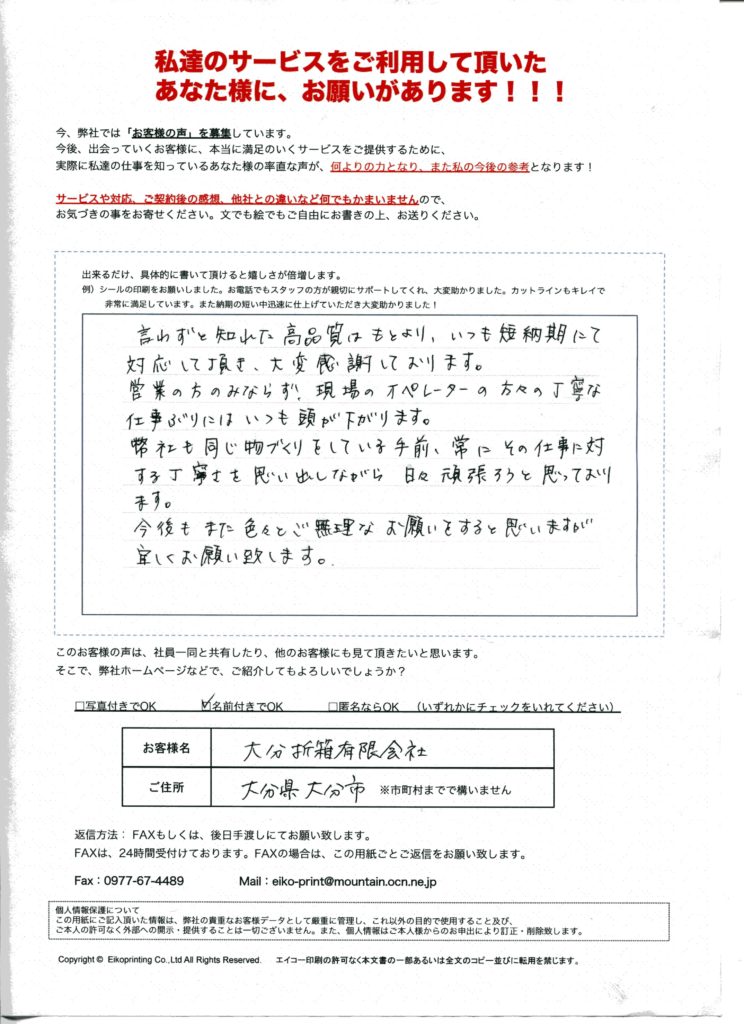 私達のサービスをご利用して頂いた
あなた様に、お願いがあります！！！
今、弊社では「お客様の声」を募集しています。
今後、出会っていくお客様に、本当に満足のいくサービスをご提供するために、
実際に私達の仕事を知っているあなた様の率直な声が、何よりの力となり、また私の今後の参考となります！
サービスや対応、ご契約後の感想、他社との違いなど何でもかまいませんので、
お気づきの事をお寄せください。文でも絵でもご自由にお書きの上、お送りください。
出来るだけ、具体的に書いて頂けると嬉しさが倍増します。
例）シールの印刷をお願いしました。お電話でもスタッフの方が親切にサポートしてくれ、大変助かりました。カットラインもキレイで
非常に満足しています。また納期の短い中迅速に仕上げていただき大変助かりました！
言わずと知れた高品質はもとより、いつも短納期にて
対応して頂き、大変感謝しております。
営業の方のみならず、現場のオペレーターの方々の丁寧な
仕事ぶりにはいつも頭が下がります。
弊社も同じ物づくりをしている手前、常にその仕事に対
する丁寧さを思い出しながら 日々頑張ろうと思っており
ます。
今後もまた色々とご無理なお願いをすると思いますが
宜しくお願い致します。
このお客様の声は、社員一同と共有したり、他のお客様にも見て頂きたいと思います。
そこで、弊社ホームページなどで、ご紹介してもよろしいでしょうか？
□写真付きでOK ☑名前付きでOK □匿名ならOK （いずれかにチェックをいれてください）
お客様名 大分折箱有限会社
ご住所 大分県大分市 ※市町村までで構いません
返信方法： FAXもしくは、後日手渡しにてお願い致します。
FAXは、24時間受付けております。FAXの場合は、この用紙ごとご返信をお願い致します。
Fax：0977-67-4489 Mail：eiko-print@mountain.ocn.ne.jp
個人情報保護について
この用紙にご記入頂いた情報は、弊社の貴重なお客様データとして厳重に管理し、これ以外の目的で使用すること及び、
ご本人の許可なく外部への開示・提供することは一切ございません。また、個人情報はご本人様からのお申出により訂正・削除致します。
Copyright © Eikoprinting Co.,Ltd All Rights Reserved. エイコー印刷の許可なく本文書の一部あるいは全文のコピー並びに転用を禁じます。